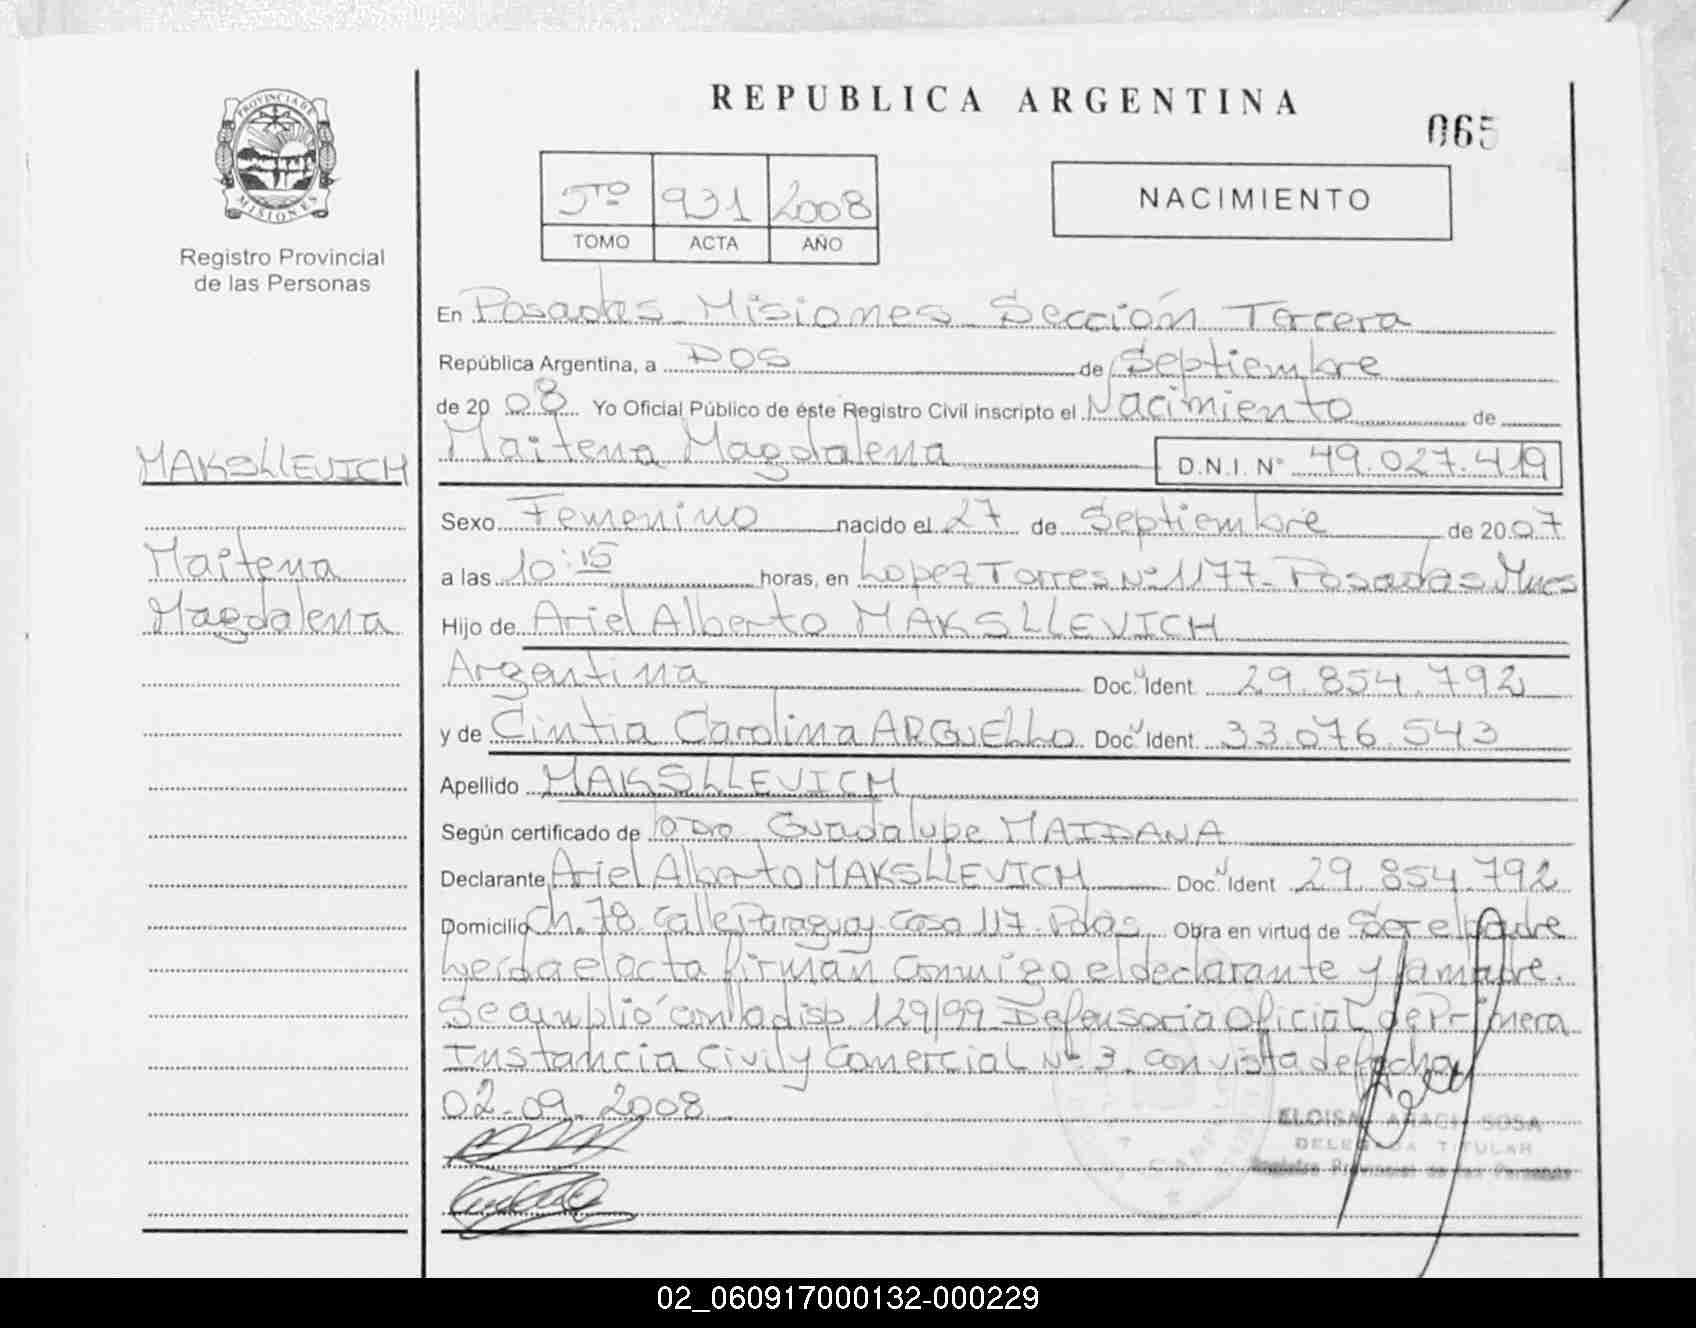 REPUBLICA ARGENTINA
065
PROVINCIA DE MISIONES
Registro Provincial
de las Personas
5to 931 2008
TOMO ACTA AÑO
NACIMIENTO
En Posadas Misiones Sección Tercera
República Argentina, a DOS de Septiembre
de 20 08 Yo Oficial Público de éste Registro Civil inscripto el Nacimiento de
Maitena Magdalena D.N.I. N° 49.027.419
MAKSLLEVICH
Maitena
Magdalena
Sexo Femenino nacido el 27 de Septiembre de 20 07
a las 10:15 horas, en Lopez Torres Nº 1177 - Posadas Mnes
Hijo de Ariel Alberto MAKSLLEVICH
Argentina Doc. Ident. 29.854.792
y de Cintia Carolina ARGUELLO Doc. Ident. 33.076.543
Apellido MAKSLLEVICH
Según certificado de Guadalupe MAIDANA
Declarante Ariel Alberto MAKSLLEVICH Doc. Ident 29.854.792
Domicilio Ch. 78 Calle Paraguay Casa 117 - Pdas Obra en virtud de Ser el padre
Leída el acta firman conmigo el declarante y la madre.
Se cumplió con la disp. 129/99 Defensoria Oficial de Primera
Instancia Civil y Comercial Nº 3 con vista de fecha
02-09-2008
ELOISA SOSA
DELEGADA TITULAR
Registro Provincial de las Personas
02_060917000132-000229